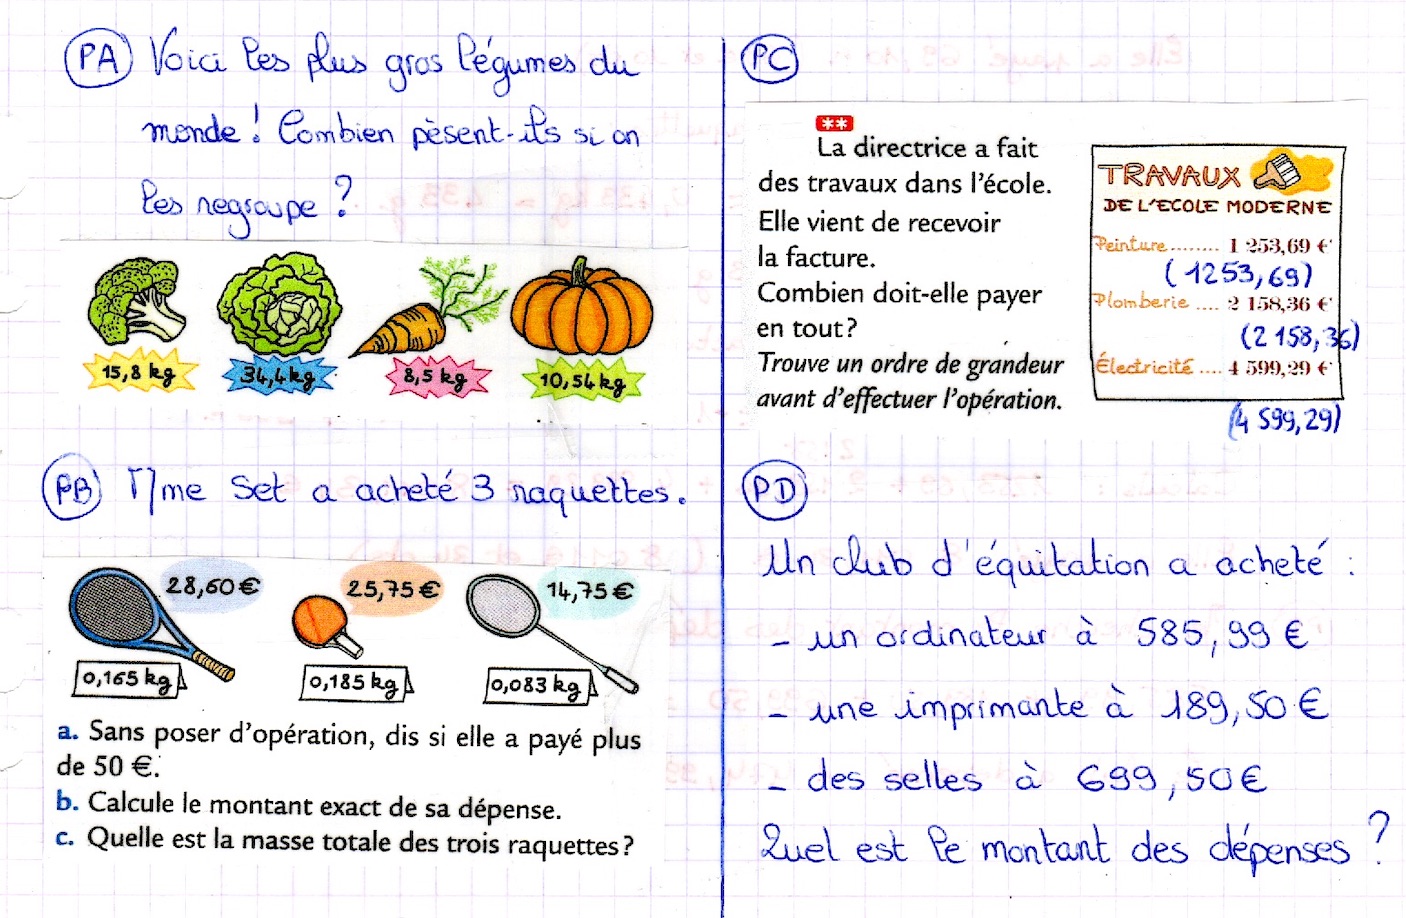 PA Voici les plus gros légumes du
monde ! Combien pèsent-ils si on
les regroupe ?
15,8 kg 34,4 kg 8,5 kg 10,54 kg
PB Mme Set a acheté 3 raquettes.
28,60 € 25,75 € 14,75 €
0,165 kg 0,185 kg 0,083 kg
a. Sans poser d'opération, dis si elle a payé plus
de 50 €.
b. Calcule le montant exact de sa dépense.
c. Quelle est la masse totale des trois raquettes ?
PC
**
La directrice a fait
des travaux dans l'école.
Elle vient de recevoir
la facture.
Combien doit-elle payer
en tout ?
Trouve un ordre de grandeur
avant d'effectuer l'opération.
TRAVAUX
DE L'ECOLE MODERNE
Peinture ........ 1 253,69 €
(1253,69)
Plomberie .... 2 158,36 €
(2 158,36)
Électricité .... 4 599,29 €
(4 599,29)
PD
Un club d'équitation a acheté :
- un ordinateur à 585,99 €
- une imprimante à 189,50 €
- des selles à 699,50 €
Quel est le montant des dépenses ?